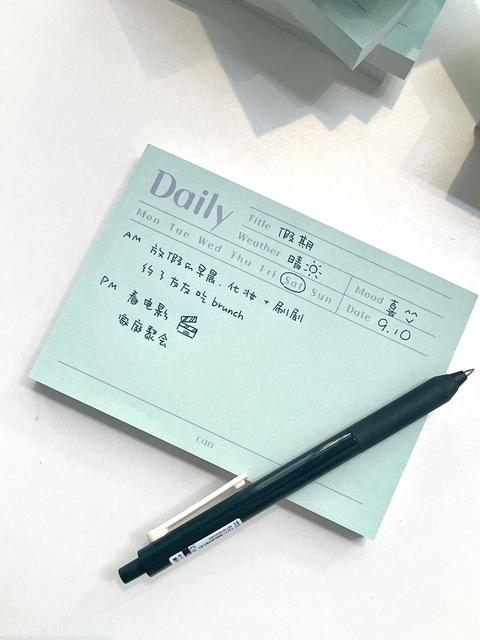 Daily
Title 假期
Weather 晴
Mon Tue Wed Thu Fri Sat Sun
Mood 喜
Date 9.10
AM 放假的早晨、化妆+刷剧
约了友友吃brunch
PM 看电影
家庭聚会
can